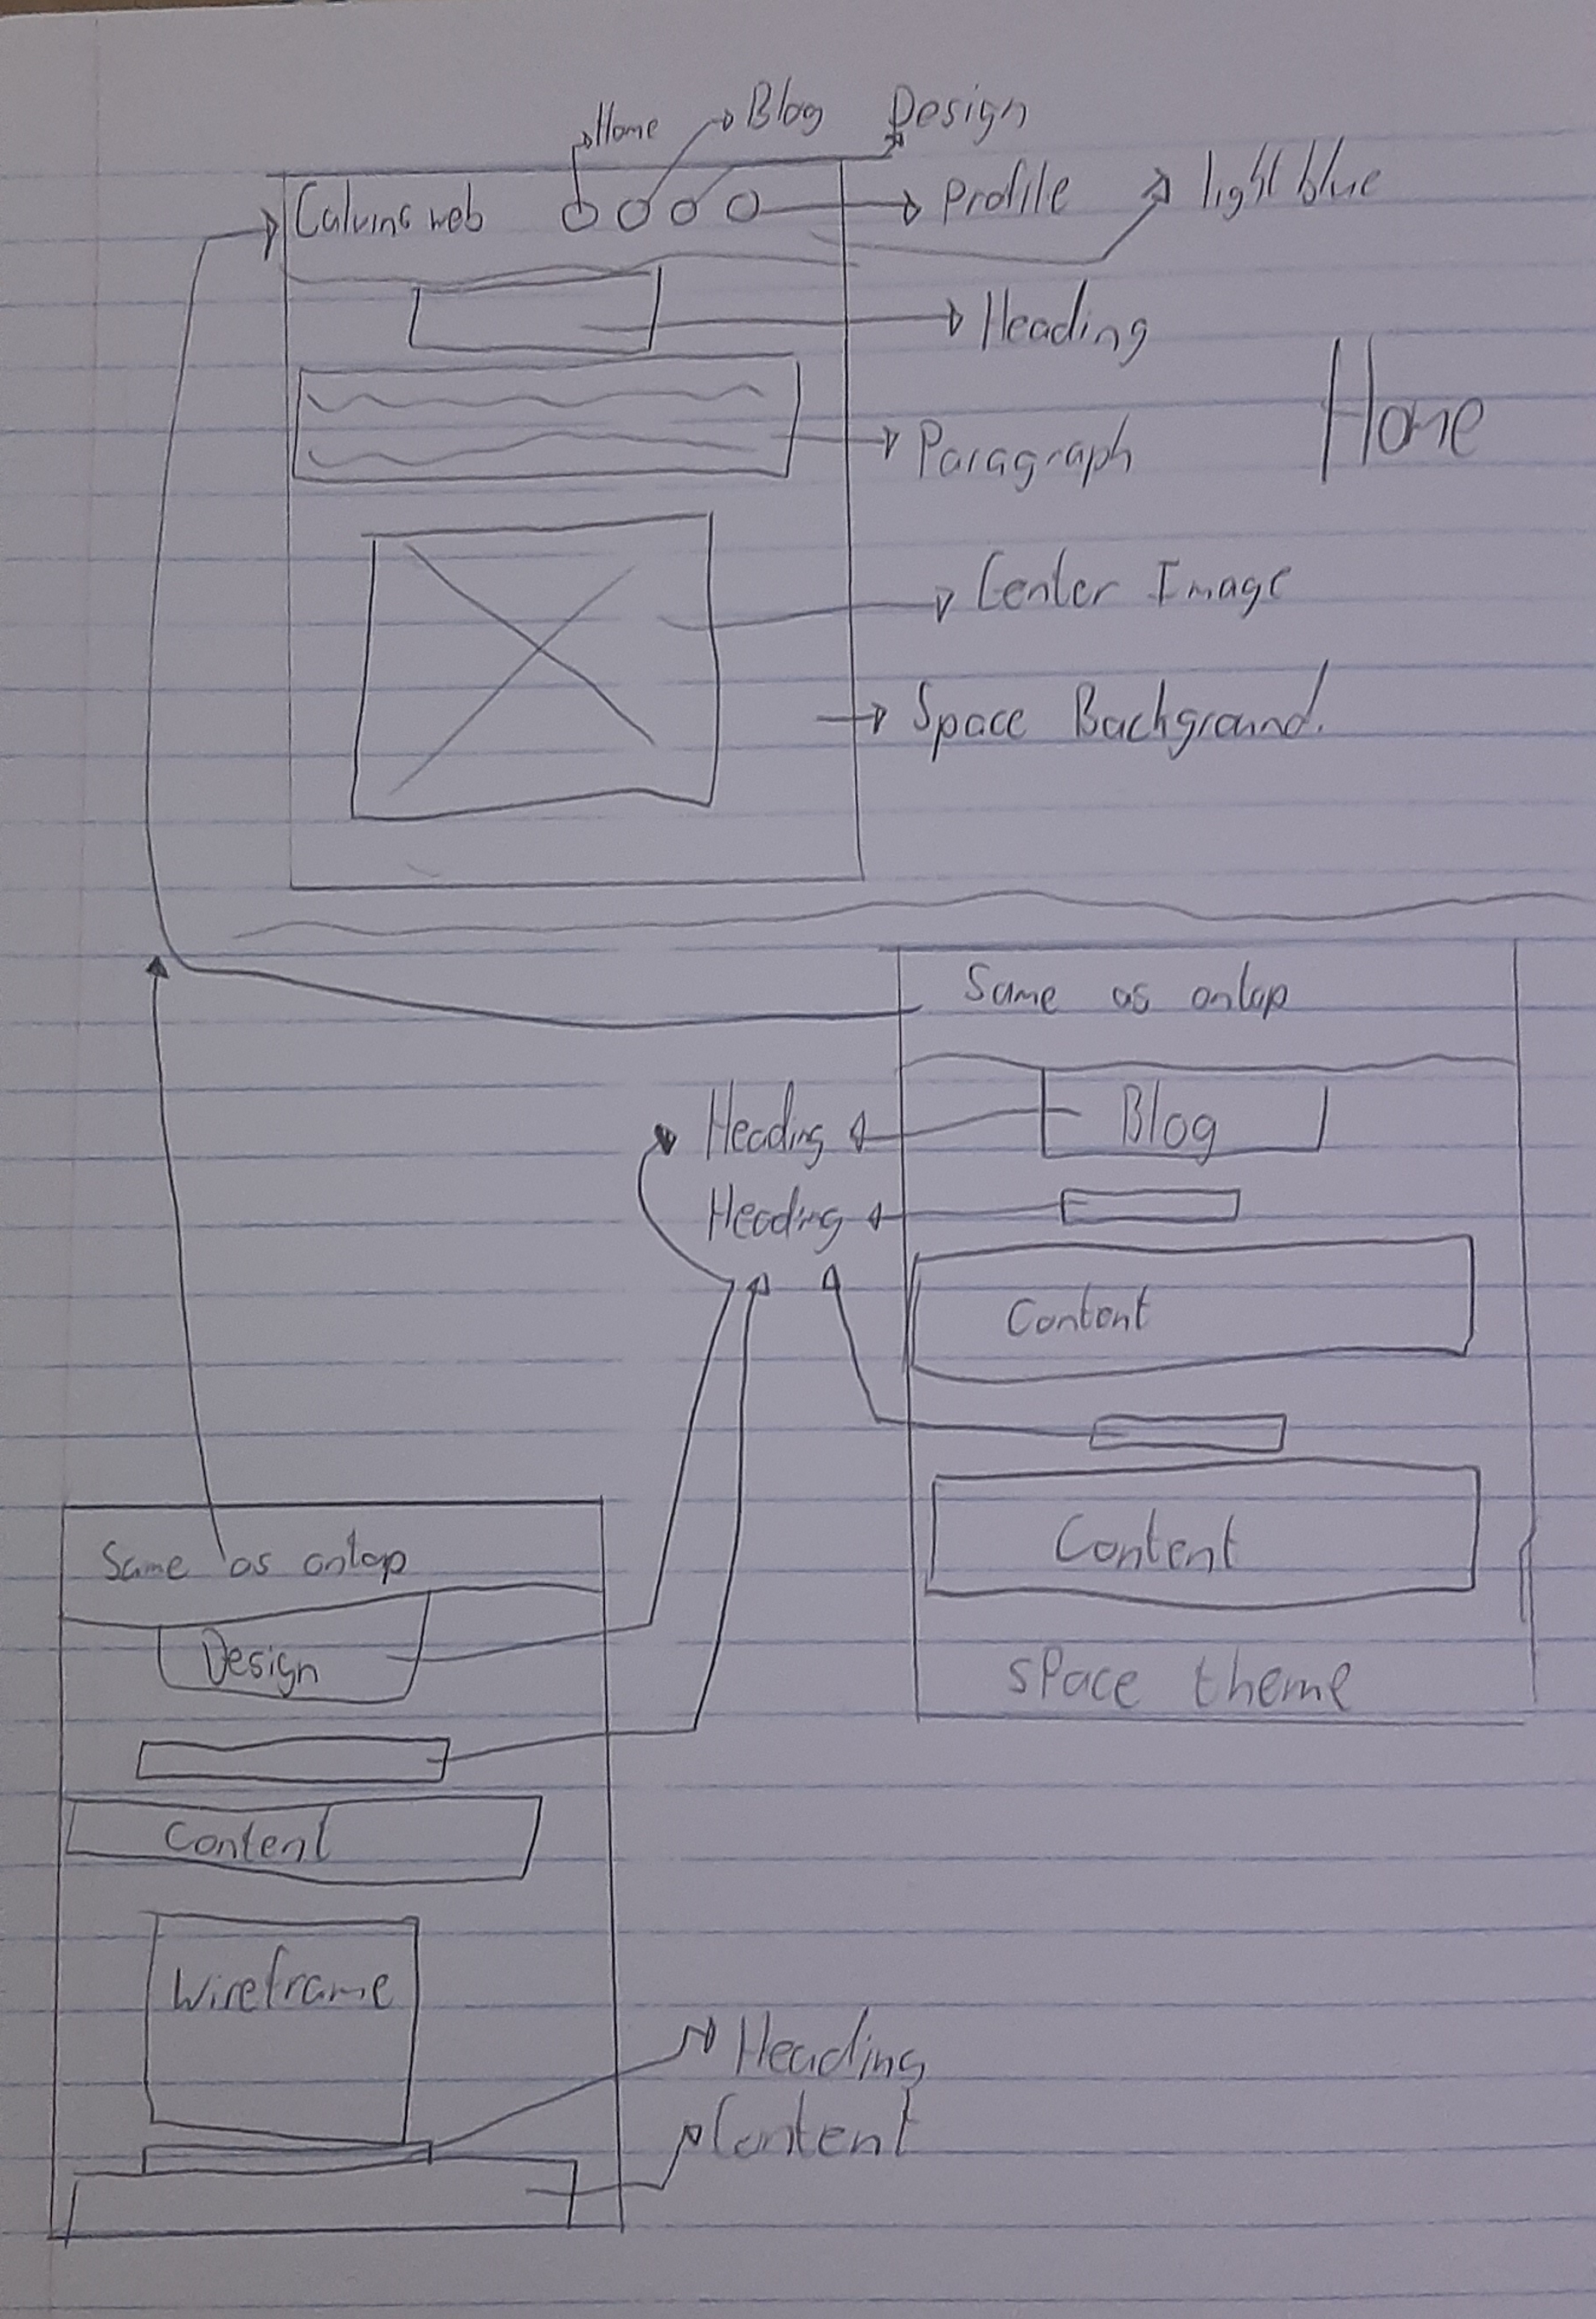 Home
Blog
Design
Calvins web
Profile
light blue
Heading
Home
Paragraph
Center Image
Space Background.
Same as ontop
Heading
Blog
Heading
Content
Content
Same as ontop
Design
space theme
Content
Wireframe
Heading
Content